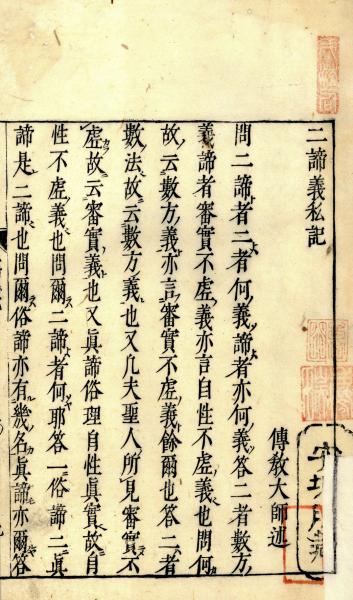 二諦義私記
傳教大師述
問二諦者二者何義諦者亦何義答二者數方
義諦者審實不虛義亦言自性不虛義也問何
故云數方義亦言審實不虛義餘爾也答二者
數法故云數方義也又凡夫聖人所見審實不
虛故云審實義也又眞諦俗理自性眞實故自
性不虛義也問爾二諦者何耶答一俗諦二眞
諦是二諦也問爾俗諦亦有幾名眞諦亦爾答